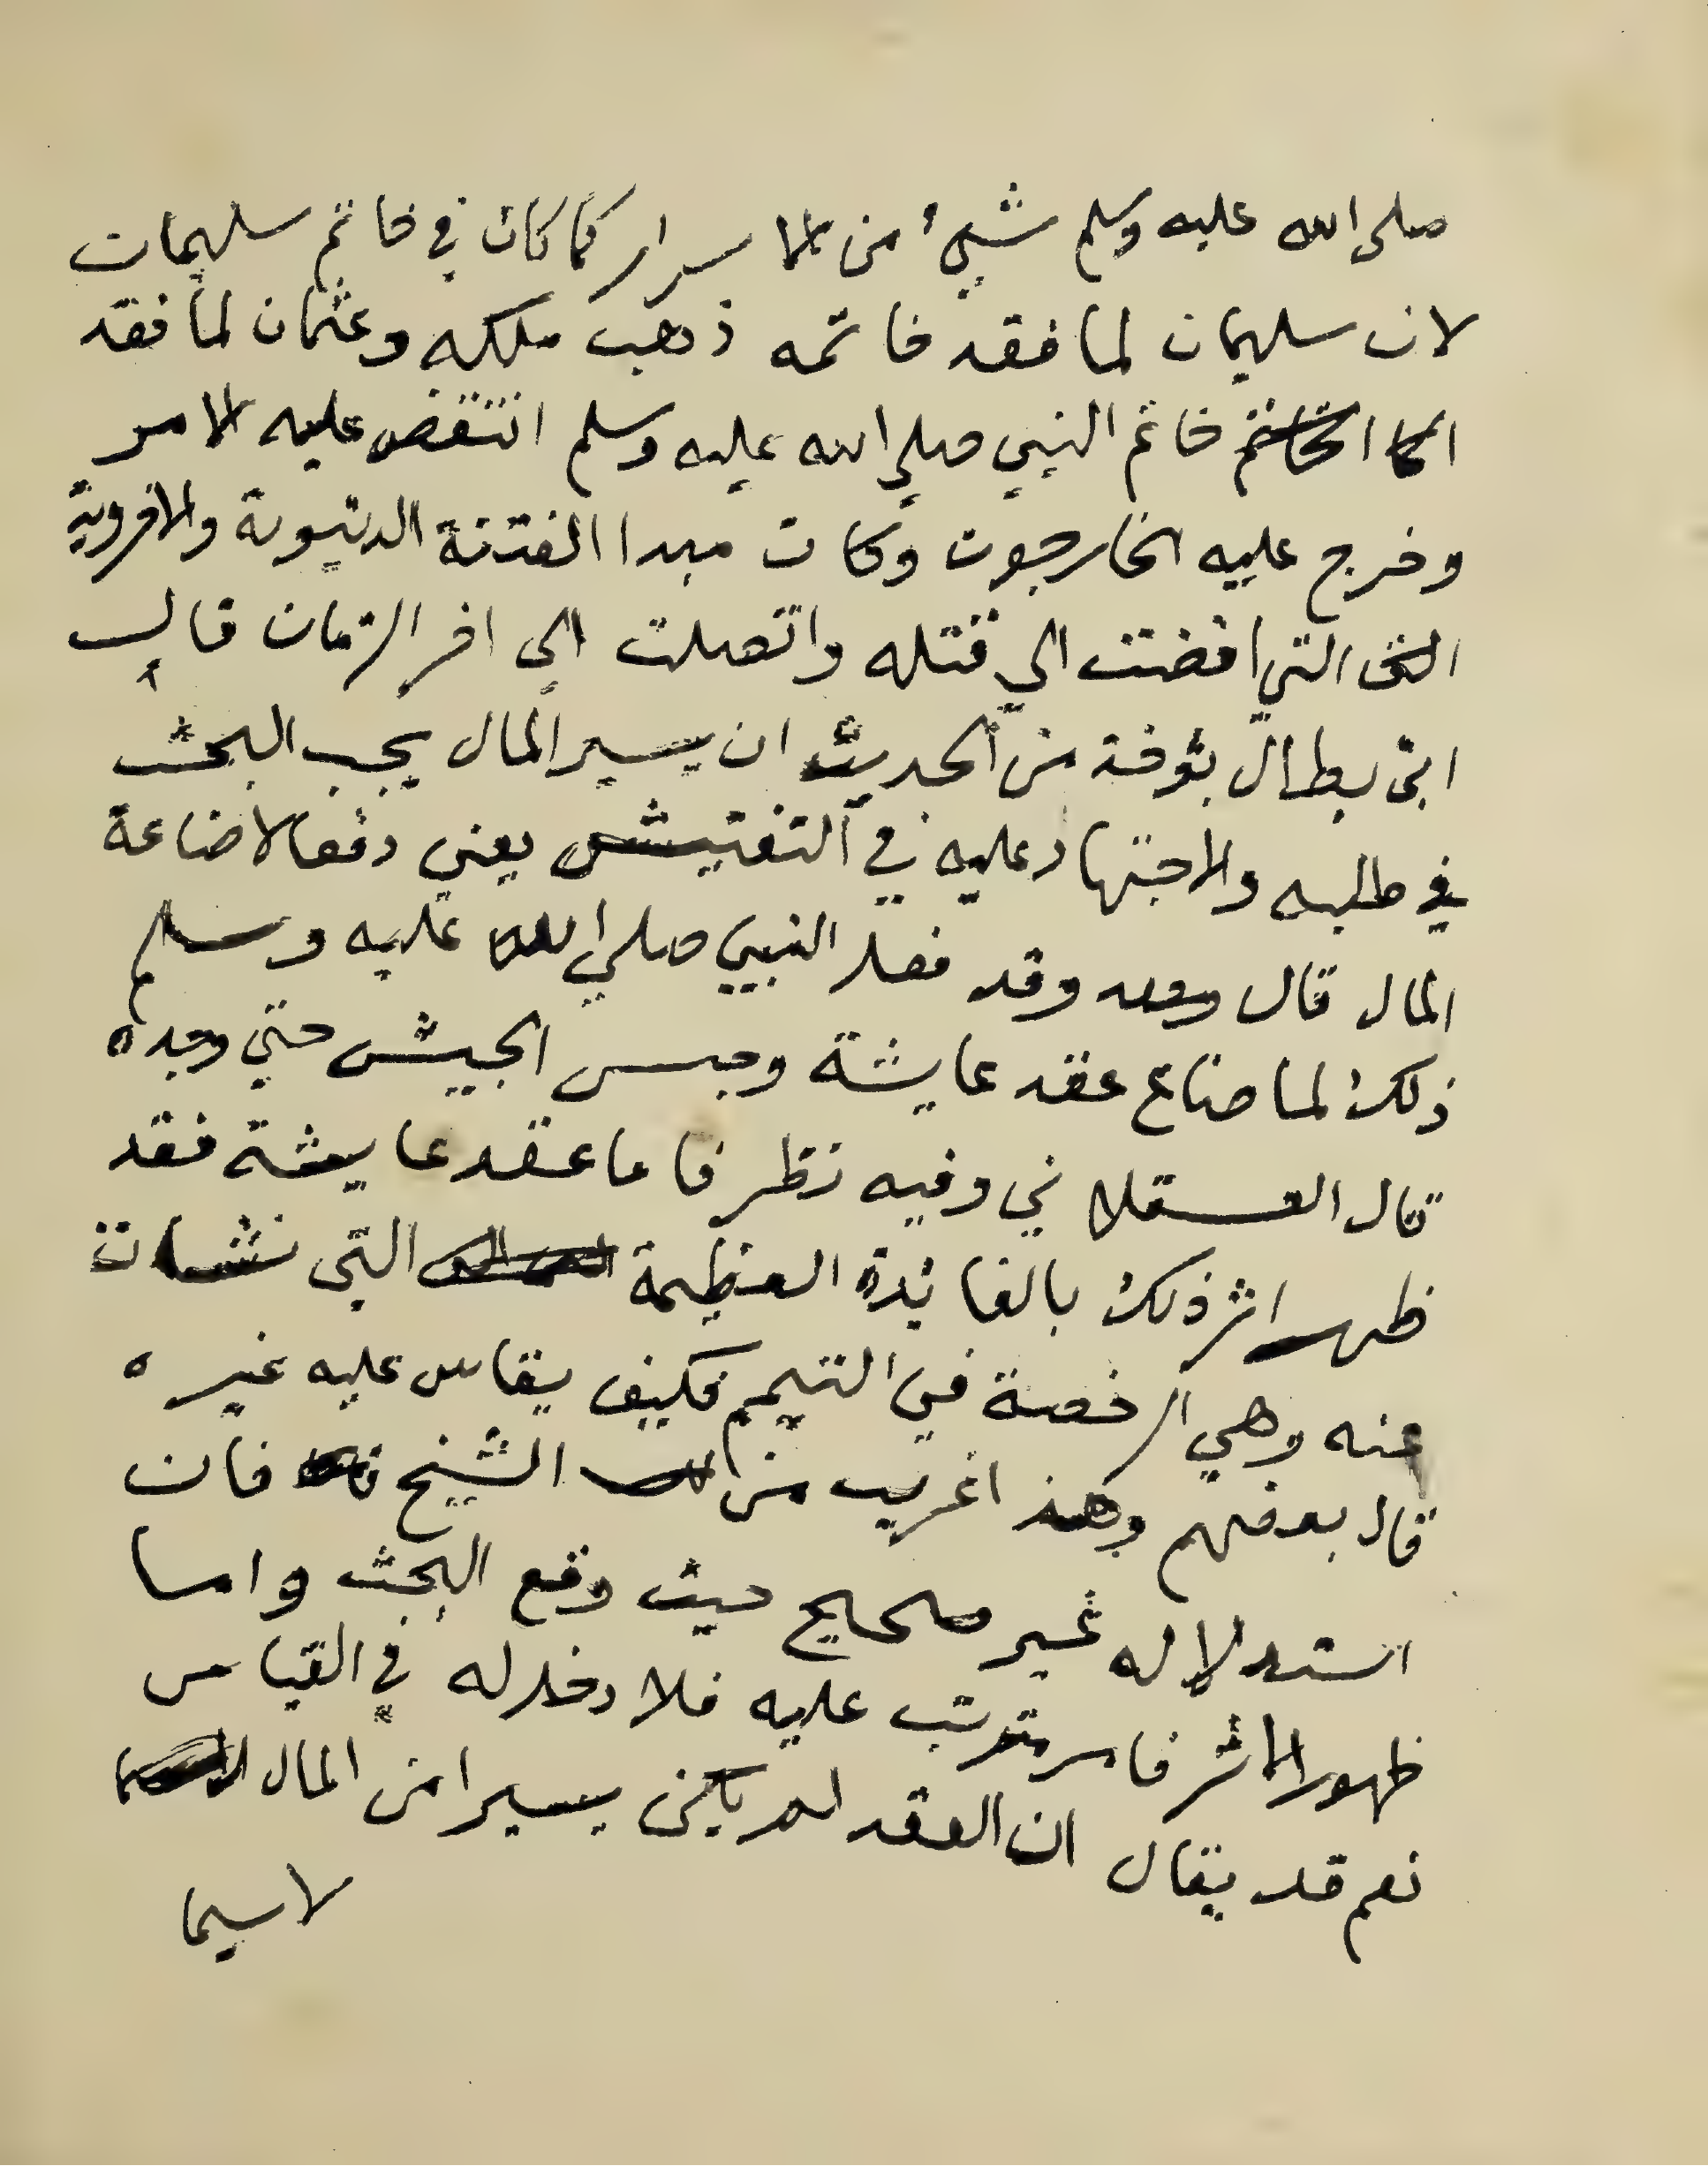 صلى الله عليه وسلم شيئ من الاسرار كما كان في خاتم سليمان
لان سليمان لما فقد خاتمه ذهب ملكه وعثمان لما فقد
خاتم النبي صلي الله عليه وسلم انتقض عليه الامر
وخرج عليه الخارجون وكان مبدا الفتنة الدنيوية والاخروية
التي افضت الي قتله واتصلت الى اخر الزمان قال
ابن بطال يؤخذ من الحديث ان يسير المال يجب البحث
في طلبه والاجتهاد عليه في التفتيش يعني دفعا لاضاعة
المال قال وقد فعل النبي صلي الله عليه وسلم
ذلك لما ضاع عقد عايشة وحبس الجيش حتي وجده
قال العسقلاني وفيه نظر فاما عقد عايشة فقد
ظهر اثر ذلك بالفائدة العظيمة التي نشات
عنه وهي الرخصة في التيمم فكيف يقاس عليه غيره
قال بعضهم وهذا غريب من الشيخ فان
استدلاله غير صحيح حيث وقع البحث واما
ظهور الاثر فامر مترتب عليه فلا دخل له في القياس
نعم قد يقال ان العقد لم يكن يسيرا من المال
لاسيما